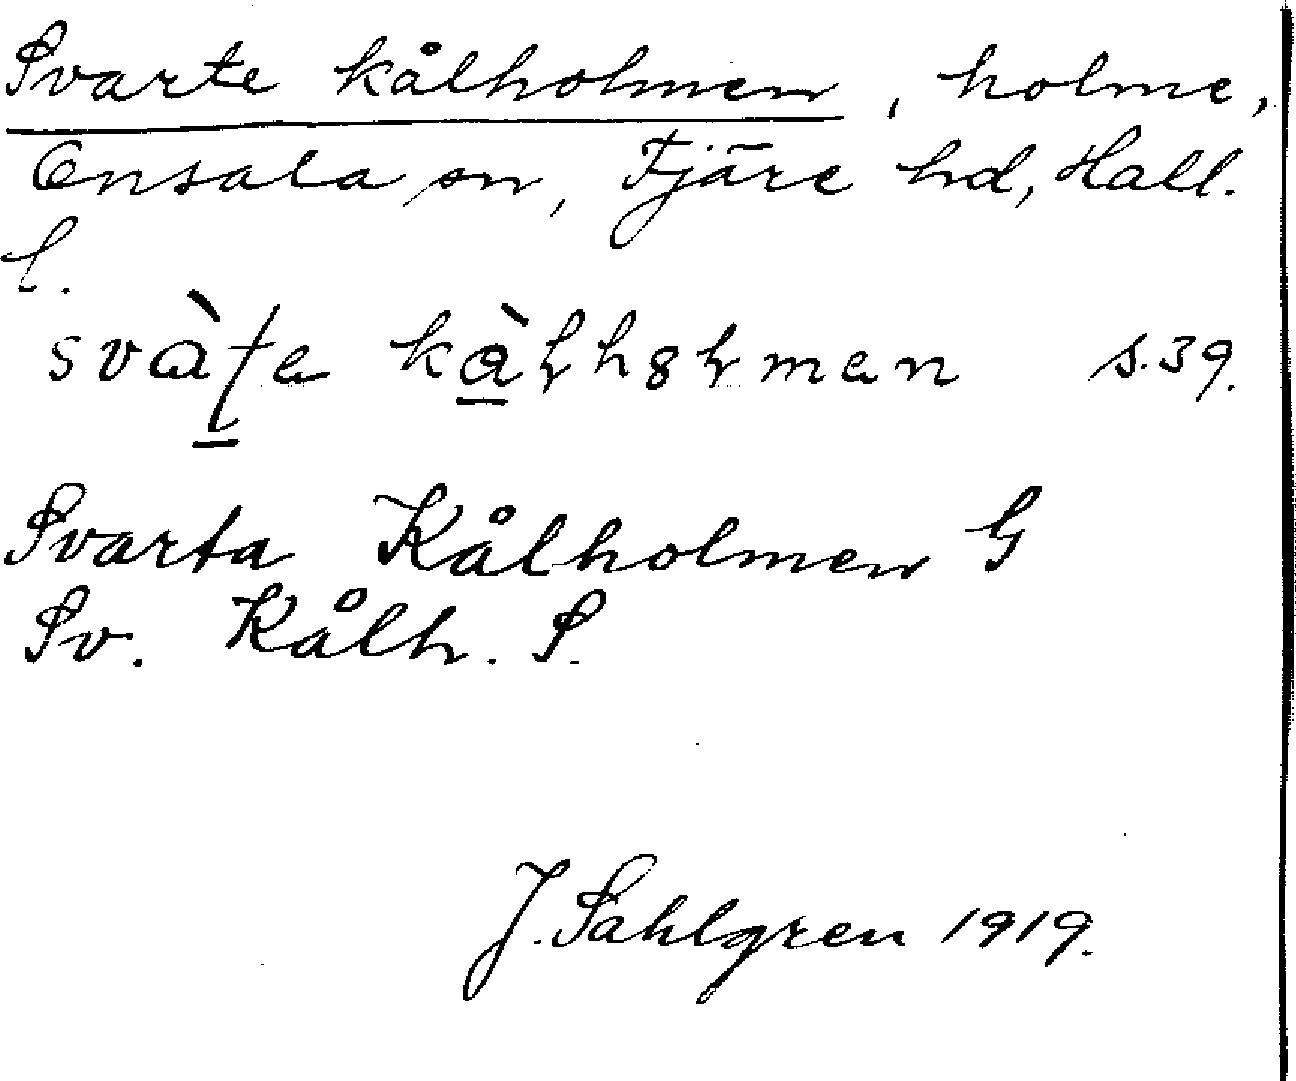 Svarte kålholmen, holme,
Onsala sn, Fjäre hd, Hall.
l.
s. 39.
Svarta Kålholmen G
Sv. Kålh. S.
J. Sahlgren 1919.